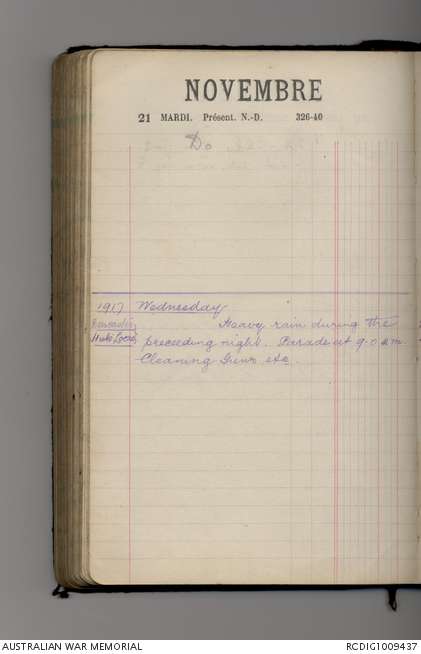 NOVEMBRE
21 MARDI. Présent. N.-D. 326-40
Do
1917 Wednesday
Heavy rain during the
preceeding night. Parade at 9.0 am
Cleaning Guns etc.
AUSTRALIAN WAR MEMORIAL
RCDIG1009437